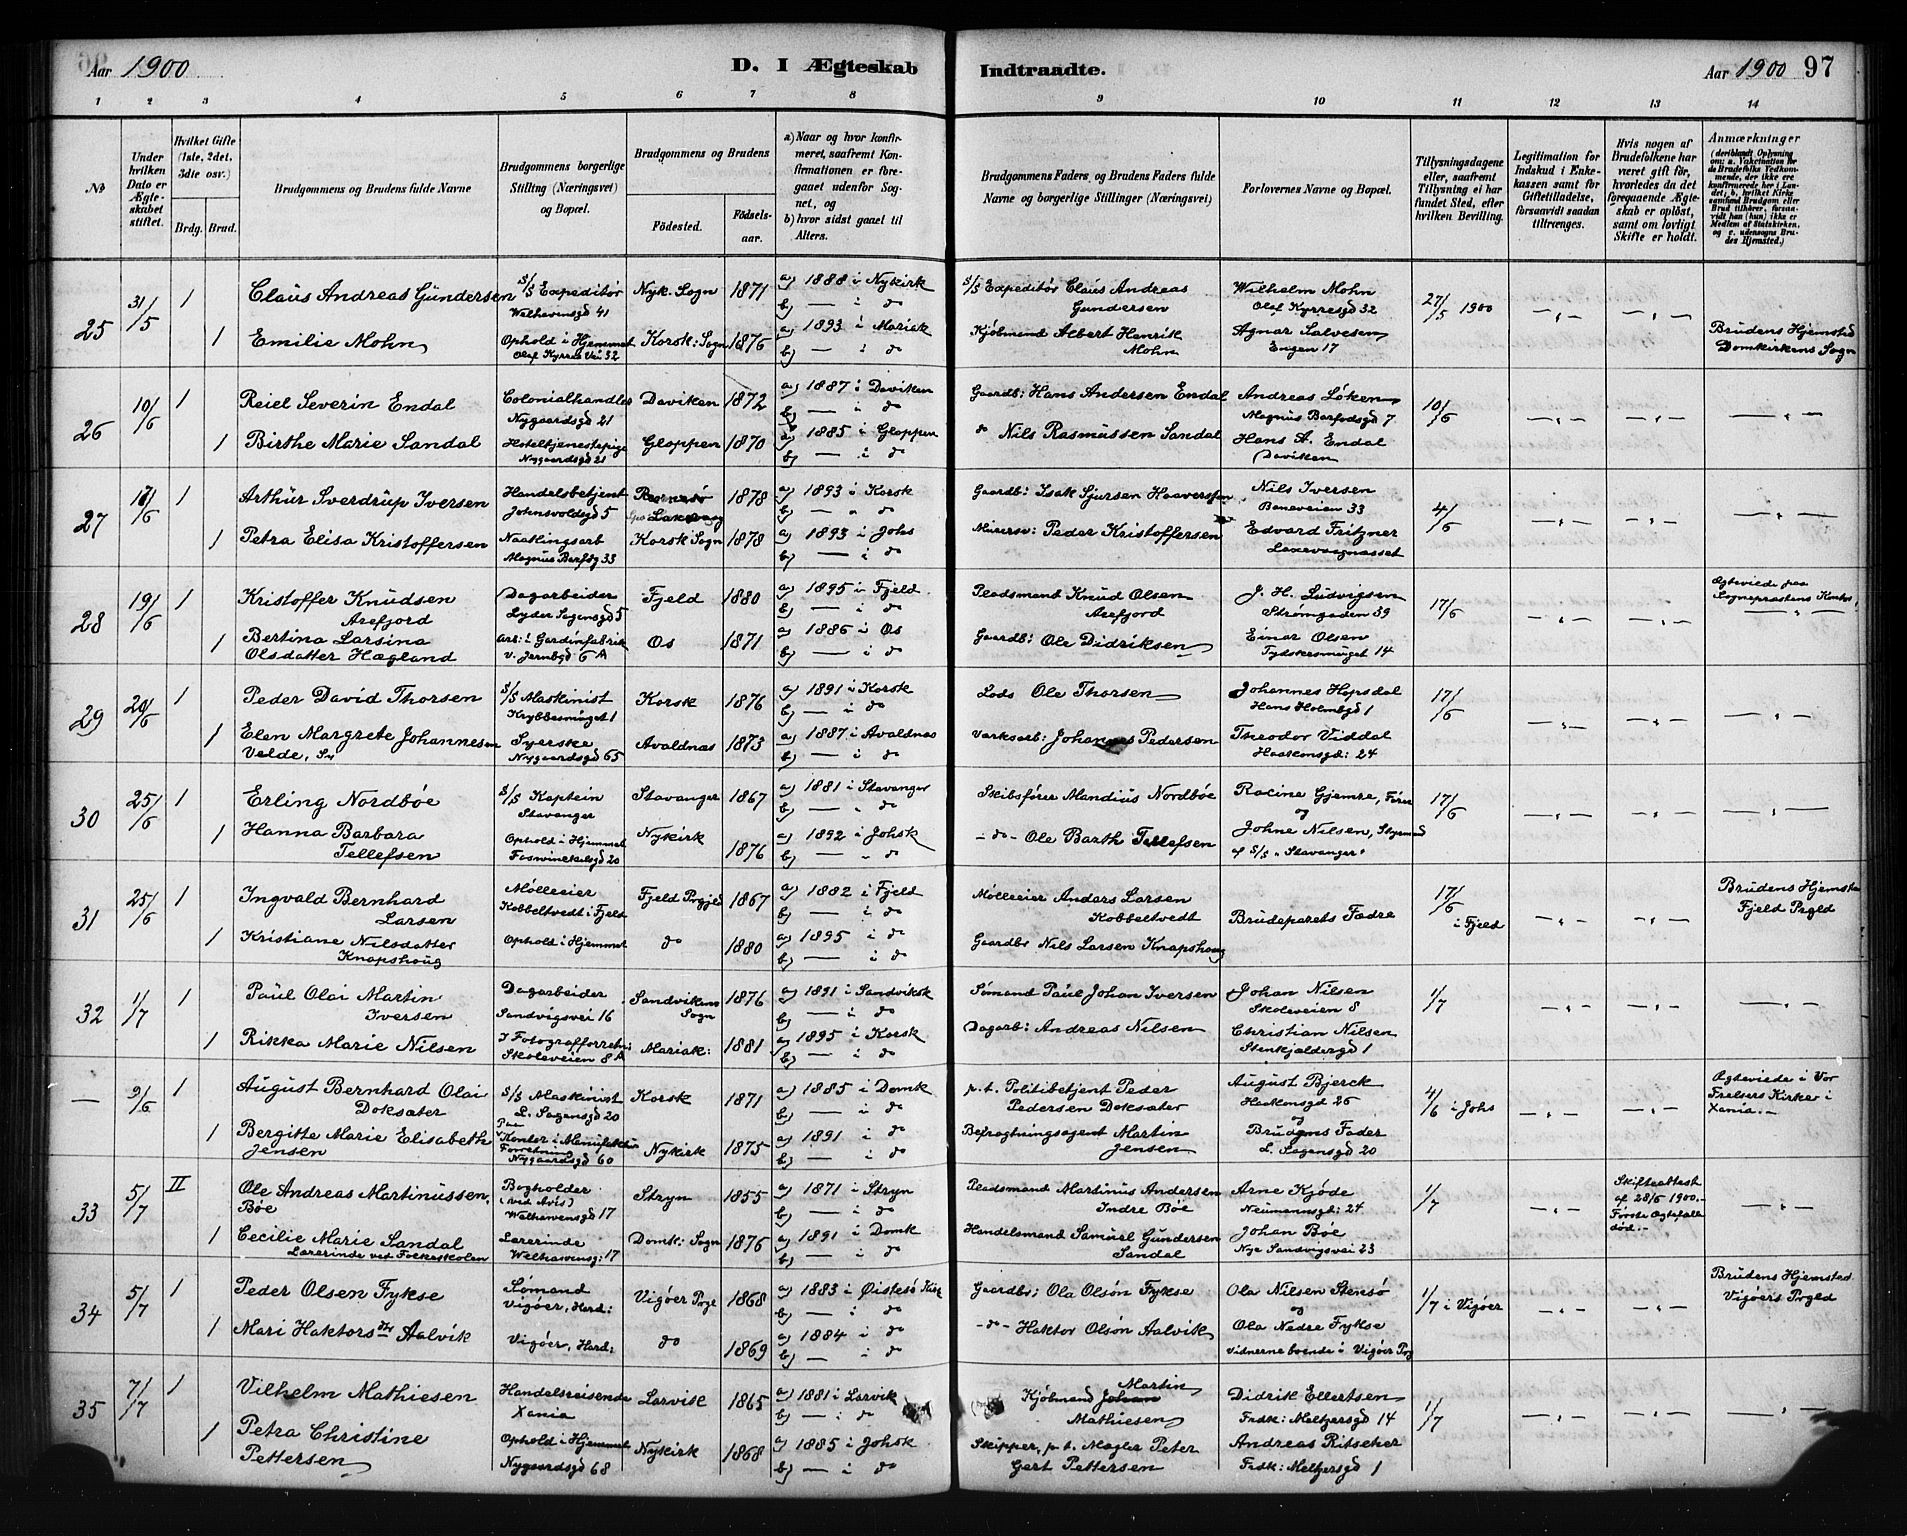 Aar 1900
D. I Ægteskab
Indtraadte.
Aar 1900 97
1 2 3 4 5 6 7 8 9 10 11 12 13 14
No
Under hvilken Dato er Ægteskabet stiftet.
Hvilket Gifte (1ste, 2det, 3die osv.)
Brdg. Brud.
Brudgommens og Brudens fulde Navne
Brudgommens borgerlige Stilling (Næringsvei) og Bopæl.
Brudgommens og Brudens
Fødested.
Fødselsaar.
a) Naar og hvor konfirmeret, saafremt Konfirmationen er foregaaet udenfor Sognet, og
b) hvor sidst gaaet til Alters.
Brudgommens Faders, og Brudens Faders fulde Navne og borgerlige Stillinger (Næringsvei)
Forlovernes Navne og Bopæl.
Tillysningsdagene eller, saafremt Tillysning ei har fundet Sted, efter hvilken Bevilling.
Legitimation for Indskud i Enkekassen samt for Giftetilladelse, forsaavidt saadan tiltrænges.
Hvis nogen af Brudefolkene har været gift før, hvorledes da det foregaaende Ægteskab er opløst, samt om lovligt Skifte er holdt.
Anmærkninger
(deriblandt Oplysning om: a. Vakcination for de Brudefolks Vedkommende, der ikke ere konfirmerede her i Landet; b. hvilket Kirkesamfund Brudgom eller Brud tilhører, forsaavidt han (hun) ikke er Medlem af Statskirken, og c. udensogns Brudes Hjemsted.)
25 31/5 1 Claus Andreas Gundersen S/S Expeditør Welhavensgd 41 Nyk. Sogn 1871 a) 1888 i Nykirk b) — i do S/S Expeditør Claus Andreas Gundersen Wilhelm Mohn Olaf Kyrresgd 32 27/5 1900 —„— —„—
1 Emilie Mohn Ophold i Hjemmet Olaf Kyrres Vei 32 Korsk: Sogn 1876 a) 1893 i Mariak b) — i do Kjøbmand Albert Henrik Mohn Agnar Salvesen Engen 17 Brudens Hjemsted Domkirkens Sogn
26 10/6 1 Reiel Severin Endal Colonialhandler Nygaardsgd 21 Daviken 1872 a) 1887 i Daviken b) — i do Gaardb: Hans Andersen Endal Andreas Løken Magnus Barfodsgd 7 10/6 —„— —„— —„—
1 Birthe Marie Sandal Hoteltjenestepige Nygaardsgd 21 Gloppen 1870 a) 1885 i Gloppen b) — i do do Nils Rasmussen Sandal Hans A. Endal Daviken
27 17/6 1 Arthur Sverdrup Iversen Handelsbetjent Johnsvoldsgd 5 1878 a) 1893 i Korsk b) — „ do Gaardb: Isak Sjursen Nils Iversen Baneveien 33 4/6 —„— —„— —„—
1 Petra Elisa Kristoffersen Magnus Barfdg 33 Korsk Sogn 1878 a) 1893 i Johs b) — i do Murersv: Peder Kristoffersen Edvard Fritzner Laxevaagnæsset
28 19/6 1 Kristoffer Knudsen Arefjord Dagarbeider Lyder Sagensgd 5 Fjeld 1880 a) 1895 i Fjeld b) — i do Pladsmand Knud Olsen Arefjord J. H. Ludvigsen Strømgaden 39 17/6 Ægteviede paa Sognepræstens Kontor —„—
1 Bertina Larsina Olsdatter Hægland Arb: i Gardinfabrik v. Jernbgd 6 A Os 1871 a) 1886 i Os b) — i do Gaardb: Ole Didriksen Einar Olsen Tydskesmuget 14
29 20/6 1 Peder David Thorsen S/S Maskinist Krybbesmuget 1 Korsk 1876 a) 1891 i Korsk b) — i do Lods Ole Thorsen Johannes Hopsdal Hans Holmbgd 1 17/6 —„— —„— —„—
1 Elen Margrete Johannesen Velde, Syerske Nygaardsgd 65 Avaldnæs 1873 a) 1887 i Avaldnæs b) — i do Værksarb: Johannes Pedersen Theodor Viddal Haakonsgd: 24
30 25/6 1 Erling Nordbøe S/S Kaptein Stavanger Stavanger 1867 a) 1881 i Stavanger b) — „ do Skibsfører Mandius Nordbøe Racine Gjemre, og 17/6 —„— —„— —„—
1 Hanna Barbara Tellefsen Ophold i Hjemmet Foswinckelsgd 20 Nykirk 1876 a) 1892 i Johsk b) — „ do – do – Ole Barth Tellefsen Johne Nilsen, Styrmand af S/S „Stavanger“
31 25/6 1 Ingvald Bernhard Larsen Mølleeier Kobbeltvedt i Fjeld Fjeld Prgjld 1867 a) 1882 i Fjeld b) — i do Mølleeier Anders Larsen Kobbeltvedt Brudeparets Fædre 17/6 i Fjeld —„— —„— Brudens Hjemsted Fjeld Prgld
1 Kristiane Nilsdatter Knapshoug Ophold i Hjemmet do 1880 a) 1895 i do b) — i do Gaardbr Nils Larsen Knapshoug
32 1/7 1 Paul Olai Martin Iversen Dagarbeider Sandvigsvei 16 Sandvikens Sogn 1876 a) 1891 i Sandviksk b) — i do Sømand Paul Johan Iversen Johan Nilsen Skoleveien 8 1/7 —„— —„— —„—
1 Rikka Marie Nilsen I Fotografforretn: Skoleveien 8 A Mariak: 1881 a) 1895 i Korsk b) — i do Dagarb: Andreas Nilsen Christian Nilsen Stenkjældergd 1
— 9/6 1 August Bernhard Olai Doksæter S/S Maskinist L. Sagensgd 20 Korsk 1871 a) 1885 i Domk b) — i do p.t. Politibetjent Peder Pedersen Doksæter August Bjerck Haakonsgd 26 og 4/6 i Johs —„— —„— Ægteviede i Vor Frelsers Kirke i Xania.—
1 Bergitte Marie Elisabeth Jensen Paa Kontor i Manufaktur Forretning Nygaardsgd 60 Nykirk 1875 a) 1891 i do b) — i do Befragtningsagent Martin Jensen Brudgms Fader L. Sagensgd 20
33 5/7 II Ole Andreas Martinussen Bøe Bogholder (ved Avis) Welhavensgd 17 Stryn 1855 a) 1871 i Stryn b) — i do Pladsmand Martinus Andersen Indre Bøe Arne Kjøde Neumannsgd: 24 1/7 —„— Skifteattest af 28/6 1900.— Første Ægtefælle død.— —„—
1 Cecilie Marie Sandal Lærerinde ved Folkeskolen Lærerinde Welhavensg: 17 Domk: Sogn 1876 a) 1891 i Domk b) — i do Handelsmand Samuel Gundersen Sandal Johan Bøe Nye Sandvigsvei 23
34 5/7 1 Peder Olsen Fykse Sømand Vigøer, Hard: Vigøer Prge 1868 a) 1883 i Østesø Kirke b) — i do Gaardbr: Ola Olsøn Fykse Ola Nilsen Stensø og 1/7 i Vigøer —„— —„— Brudens Hjemsted Vigøers Prgld
1 Mari Haktorsdtr Aalvik Vigøer, Hard: do 1869 a) 1884 i do b) — i do – do – Haktor Olsøn Aalvik Ola Nedre Fykse Vidnerne boende i Vigøer Prg
35 7/7 1 Vilhelm Mathiesen Handelsreisende Xania Larvik 1865 a) 1881 i Larvik b) — i do Kjøbmand Johan Martin Mathiesen Didrik Ellertsen Fredk: Meltzersgd 14 1/7 —„— —„— —„—
1 Petra Christine Pettersen Ophold i Hjemmet Nygaardsgd 68 Nykirk 1868 a) 1885 i Johsk b) — i do Skipper, p.t. Mægler Peter Gert Pettersen Andreas Ritscher Fredk: Meltzersgd 1